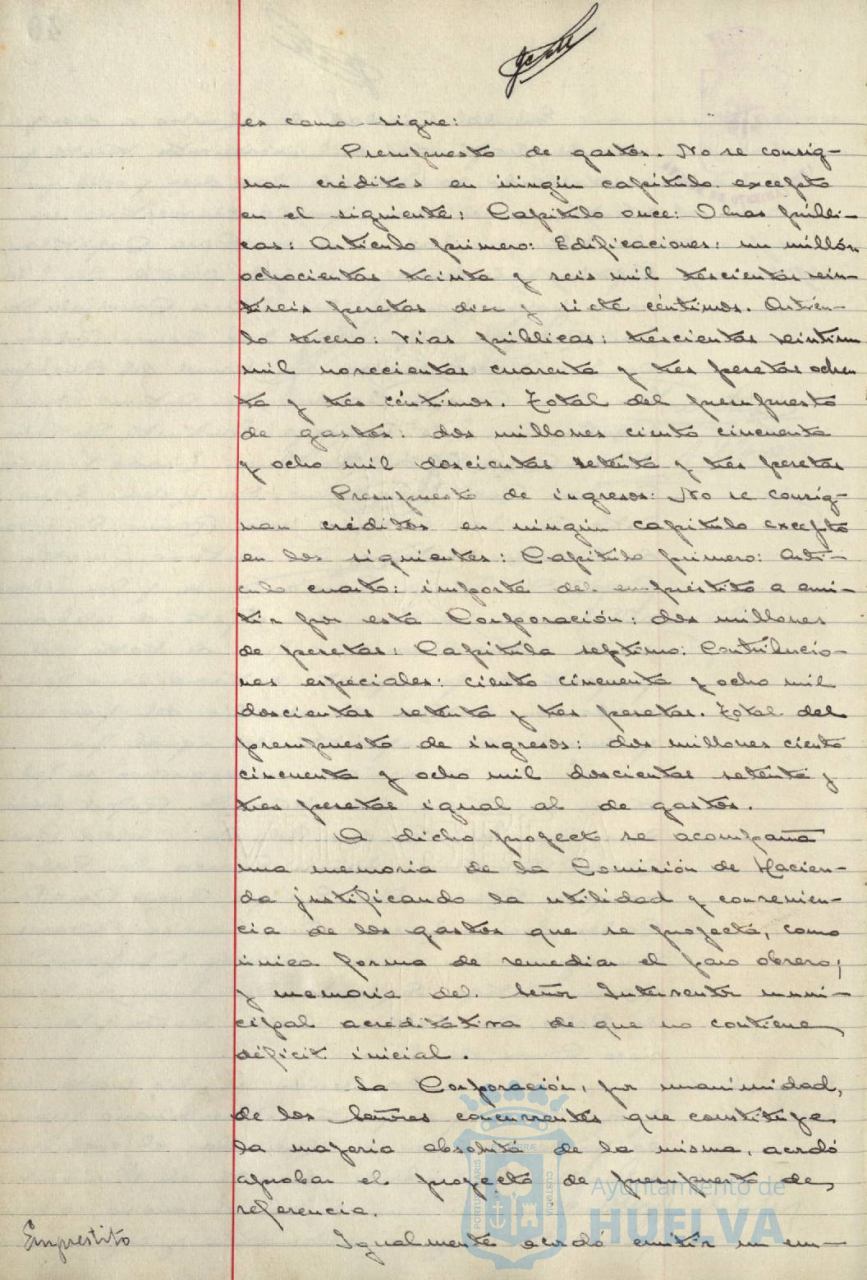 es como sigue:
Presupuesto de gastos. No se consig-
nan créditos en ningún capítulo excepto
en el siguiente: Capítulo once: Obras públi-
cas: Artículo primero: Edificaciones: un millón
ochocientas treinta y seis mil trescientas vein-
tiseis pesetas diez y siete céntimos. Artícu-
lo tercero: Vías públicas: trescientas veintiun
mil novecientas cuarenta y tres pesetas ochen
ta y tres céntimos. Total del presupuesto
de gastos: dos millones ciento cincuenta
y ocho mil doscientas setenta y tres pesetas
Presupuesto de ingresos: No se consig-
nan créditos en ningún capítulo excepto
en los siguientes: Capítulo primero: Artí-
culo cuarto: importe del empréstito a emi-
tir por esta Corporación: dos millones
de pesetas: Capítulo septimo: Contribucio-
nes especiales: ciento cincuenta y ocho mil
doscientas setenta y tres pesetas. Total del
presupuesto de ingresos: dos millones ciento
cincuenta y ocho mil doscientas setenta y
tres pesetas igual al de gastos.
A dicho proyecto se acompaña
una memoria de la Comisión de Hacien-
da justificando la utilidad y convenien-
cia de los gastos que se proyecta, como
única forma de remediar el paro obrero;
y memoria del Señor Interventor muni-
cipal acreditativa de que no contiene
déficit inicial.
La Corporación, por unanimidad,
de los Señores concurrentes que constituye
la mayoría absoluta de la misma, acordó
aprobar el proyecto de presupuesto de
referencia.
Emprestito
Igualmente acordó emitir un em-
Ayuntamiento de
HUELVA